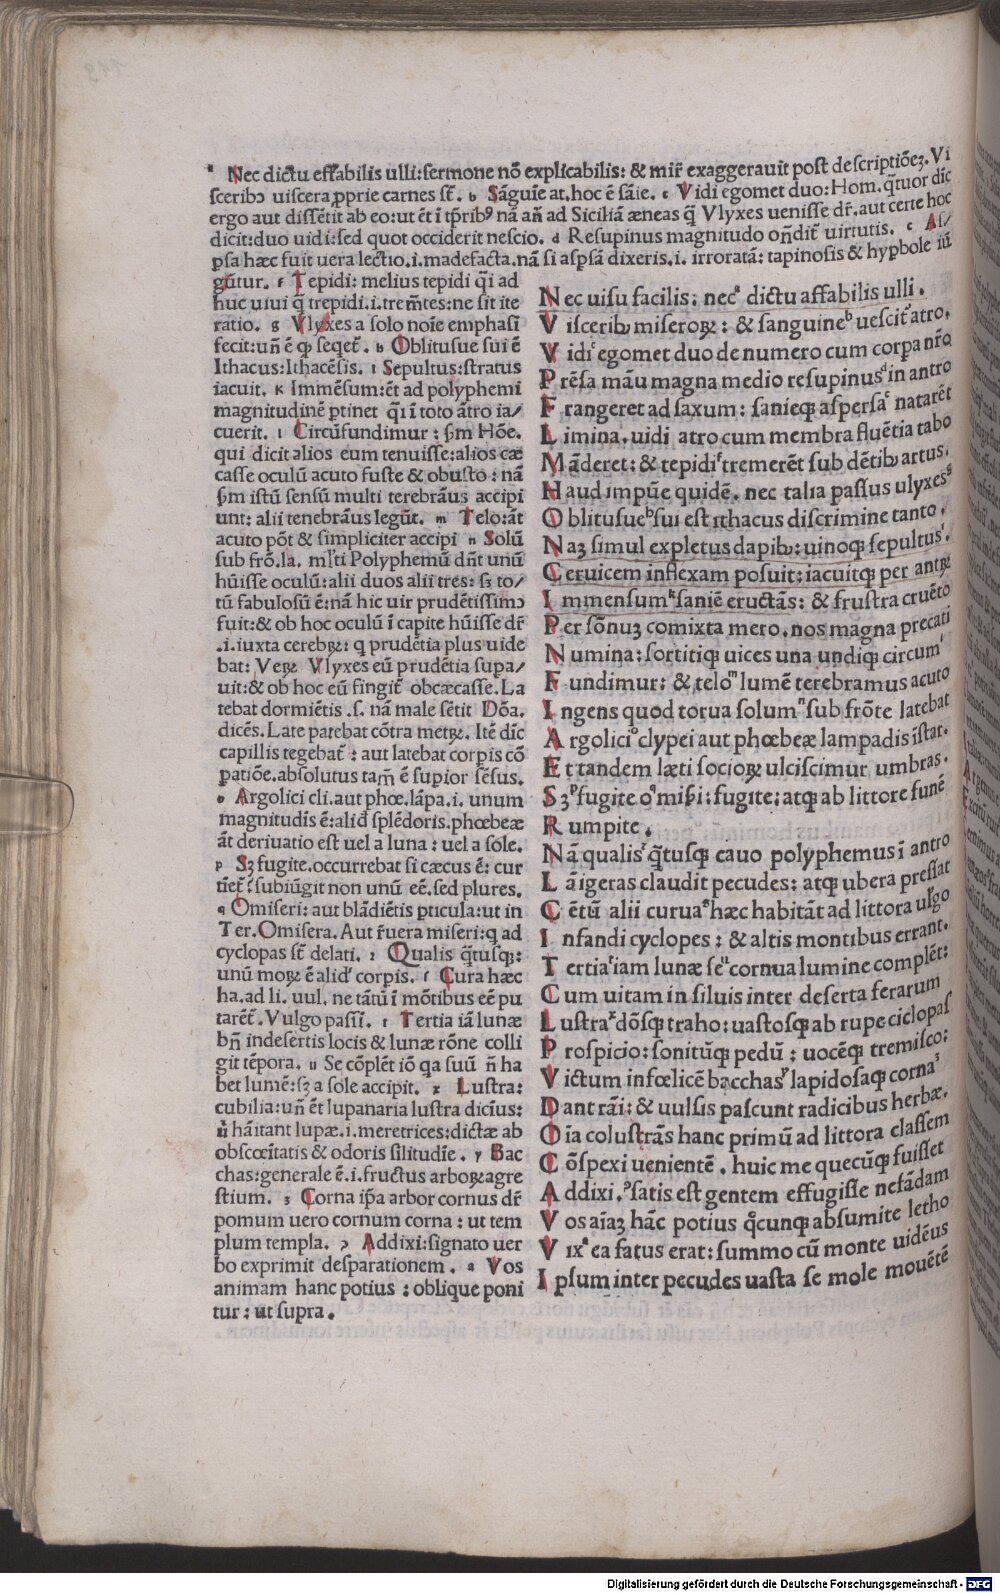 ᵃ Nec dictu effabilis ulli: sermone nō explicabilis: & mir̄ exaggerauit post descriptiōeꝫ. Vi
sceribꝫ uiscera ꝓprie carnes st̄. ᵇ Sāguīe at. hoc ē sāie. ᶜ Vidi egomet duo: Hom. q̄tuor dīc
ergo aut dissētit ab eo: ut ēt ī tp̄ribꝰ nā añ ad Siciliā æneas q̄ Vlyxes uenisse dr̄. aut certe hoc
dicit: duo uidi: sed quot occiderit nescio. ᵈ Resupinus magnitudo on̄dit̄ uirtutis. ᵉ As/
ꝑsa hæc fuit uera lectio .i. madefacta. nā si aspsā dixeris .i. irroratā: tapinosis & hypbole iū
gūtur. ᶠ Tepidi: melius tepidi q̄i ad
huc uiui q̄ trepidi .i. trem̄tes: ne sit ite
ratio. ᵍ Vlyxes a solo noīe emphasī
fecit: uñ ē ꝙ seqet̄. ʰ Oblitusue sui ē
Ithacus: Ithacēsis. ⁱ Sepultus: stratus
iacuit. ᵏ Immēsum: ēt ad polyphemi
magnitudinē ꝑtinet q̄ı ī toto ātro ia/
cuerit. ˡ Circūfundimur: s̄m Hōe.
qui dicit alios eum tenuisse: alios cæ
casse oculū acuto fuste & obusto: nā
s̄m istū sensū multi terebrāus accipi
unt: alii tenebrāus legūt. ᵐ Telo: āt
acuto pōt & simpliciter accipi ⁿ Solū
sub frō. la. ml̄ti Polyphemū dn̄t unū
hūisse oculū: alii duos alii tres: sꝫ to/
tū fabulosū ē: nā hic uir prudētissimꝰ
fuit: & ob hoc oculū ī capite hūisse dr̄
.i. iuxta cerebꝝ: q prudētia plus uide
bat: Veꝝ Vlyxes eū prudētia supa/
uit: & ob hoc eū fingit̄ obcæcasse. La
tebat dormiētis .s. nā male sētit Dōa.
dicēs. Late patebat cōtra metꝝ. Itē dic̄
capillis tegebat̄: aut latebat corpis cō
ꝑatiōe. absolutus tam̄ ē supior sēsus.
ᵒ Argolici cli. aut phœ. lāpa .i. unum
magnitudis ē: alid̄ splēdoris. phœbeæ
āt deriuatio est uel a luna: uel a sole.
ᵖ Sꝫ fugite. occurrebat si cæcus ē: cur
tīet̄? subiūgit non unū eē. sed plures.
ᑫ Omiseri: aut blādiētis pticula: ut in
Ter. Omisera. Aut r̄uera miseri: q ad
cyclopas st̄ delati. ʳ Qualis q̄tusqꝫ:
unū moꝝ ē alid̄ corpis. ˢ Cura hæc
ha. ad li. uul. ne tātū ī mōtibus eē pu
tarēt̄. Vulgo passī. ᵗ Tertia iā lunæ
bn̄ indesertis locis & lunæ rōne colli
git tēpora. ᵘ Se cōplēt iō qa suū n̄ ha
bet lumē: sꝫ a sole accipit. ˣ Lustra:
cubilia: uñ ēt lupanaria lustra dicīus:
n̄ hāitant lupæ .i. meretrices: dictæ ab
obscœītatis & odoris sīlitudīe. ʸ Bac
chas: generale ē .i. fructus arboꝝ agre
stium. ᶻ Corna ip̄a arbor cornus dr̄
pomum uero cornum corna: ut tem
plum templa. ꝰ Addixi: signato uer
bo exprimit desparationem. ᵃ Vos
animam hanc potius: oblique poni
tur: ut supra.
Nec uisu facilis: necᵃ dictu affabilis ulli.
Visceribꝫ miseroꝝ: & sanguineᵇ uescit̄ atro.
Vidiᶜ egomet duo de numero cum corpa nr̄o
Prēsa māu magna medio resupinusᵈ in antro
Frangeret ad saxum: sanieqꝫ aspersaᵉ natarēt
Limina. uidi atro cum membra fluētia tabo
Māderet: & tepidiᶠ tremerēt sub dētibꝫ artus.
Haud impūe quidē. nec talia passus ulyxesᵍ
Oblitusueʰ sui est ithacus discrimine tanto.
Naꝫ simul expletus dapibꝫ: uinoqꝫ sepultusⁱ.
Ceruicem inflexam posuit: iacuitqꝫ per antꝝ
Immensumᵏ saniē eructās: & frustra cruēto
Per sōnuꝫ comixta mero. nos magna precati
Numina: sortitiqꝫ uices una undiqꝫ circumˡ
Fundimur: & teloᵐ lumē terebramus acuto
Ingens quod torua solumⁿ sub frōte latebat
Argoliciᵒ clypei aut phœbeæ lampadis īstar.
Et tandem læti socioꝝ ulciscimur umbras.
Sꝫᵖ fugite oᑫ mis̄i: fugite: atqꝫ ab littore funē
Rumpite.
Nā qualisʳ q̄tusqꝫ cauo polyphemus ī antro
Lāigeras claudit pecudes: atqꝫ ubera pressat
Cētū alii curuaˢ hæc habitāt ad littora ulgo
Infandi cyclopes: & altis montibus errant.
Tertiaᵗ iam lunæ seᵘ cornua lumine complēt:
Cum uitam in siluis inter deserta ferarum
Lustraˣ dōsqꝫ traho: uastosqꝫ ab rupe ciclopas
Prospicio: sonitūqꝫ pedū: uocēqꝫ tremisco:
Victum infœlicē bacchasʸ lapidosaqꝫ cornaᶻ
Dant rāi: & uulsis pascunt radicibus herbæ.
Oīa colustrās hanc primū ad littora classem
Cōspexi uenientē. huic me quecūqꝫ fuisset
Addixi.ꝰ satis est gentem effugisse nefādam
Vos aīaꝫ hāc potius qͦcunqꝫ absumite letho
Vixᵃ ea fatus erat: summo cū monte uidēus
Ipsum inter pecudes uasta se mole mouētē
Digitalisierung gefördert durch die Deutsche Forschungsgemeinschaft - DFG